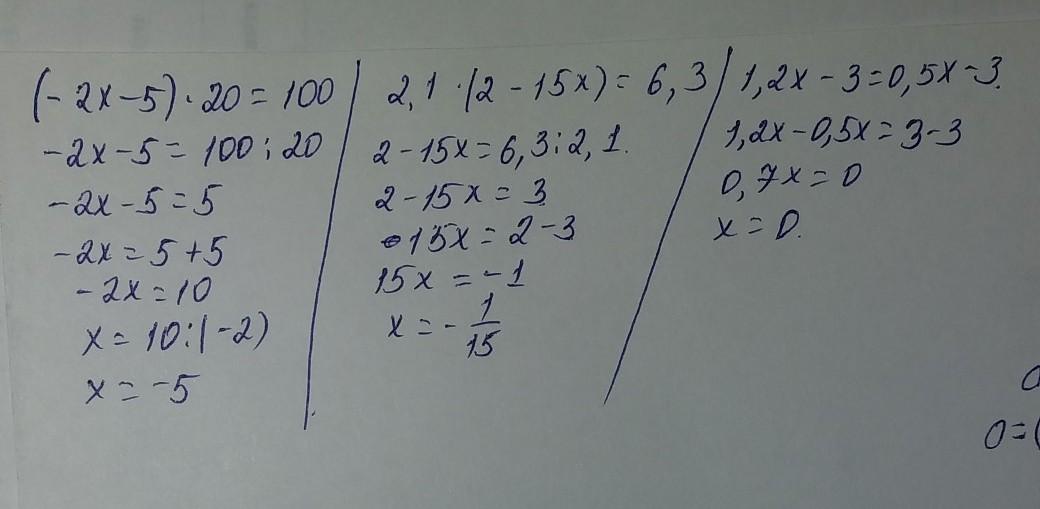 (-2x-5)·20=100
-2x-5=100:20
-2x-5=5
-2x=5+5
-2x=10
x=10:(-2)
x=-5
2,1·(2-15x)=6,3
2-15x=6,3:2,1.
2-15x=3
15x=2-3
15x=-1
x=-1/15
1,2x-3=0,5x-3.
1,2x-0,5x=3-3
0,7x=0
x=0.
0=(